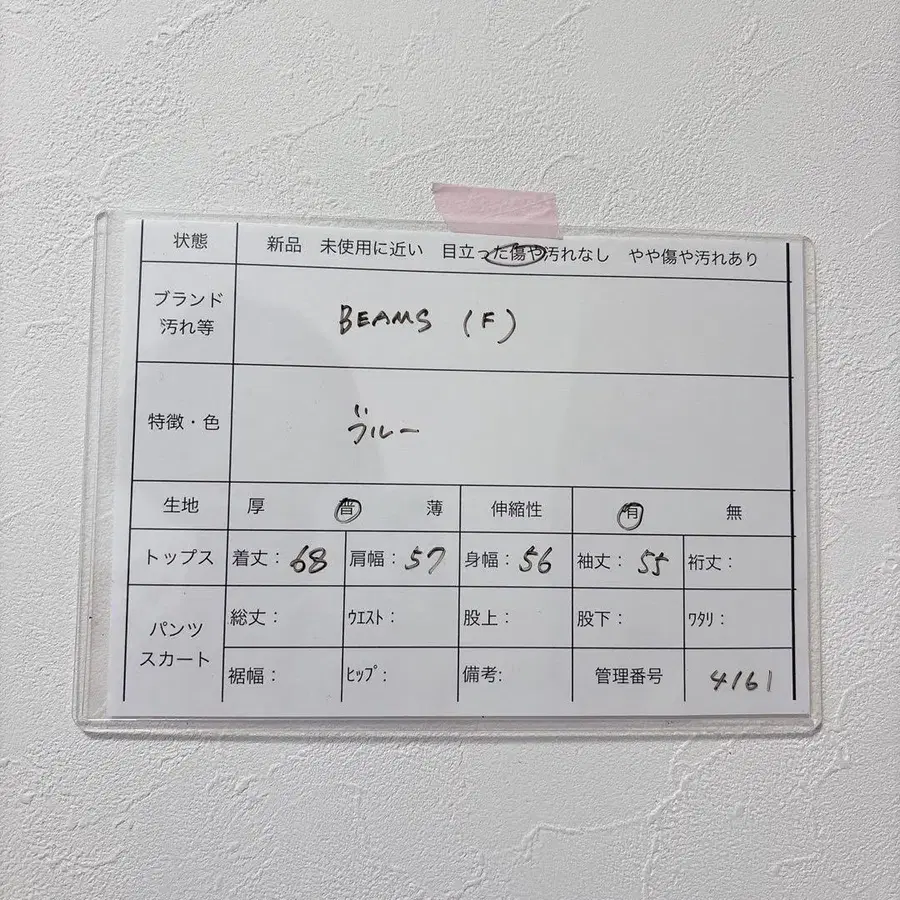 状態 新品 未使用に近い 目立った傷や汚れなし やや傷や汚れあり
ブランド
汚れ等
BEAMS (F)
特徴・色 ブルー
生地 厚 普 薄 伸縮性 有 無
トップス 着丈：68 肩幅：57 身幅：56 袖丈：55 裄丈：
パンツ
スカート
総丈： ｳｴｽﾄ： 股上： 股下： ﾜﾀﾘ：
裾幅： ﾋｯﾌﾟ： 備考: 管理番号 4161